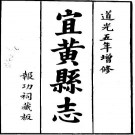 道光五年增修
宜黃縣志
報功祠藏板